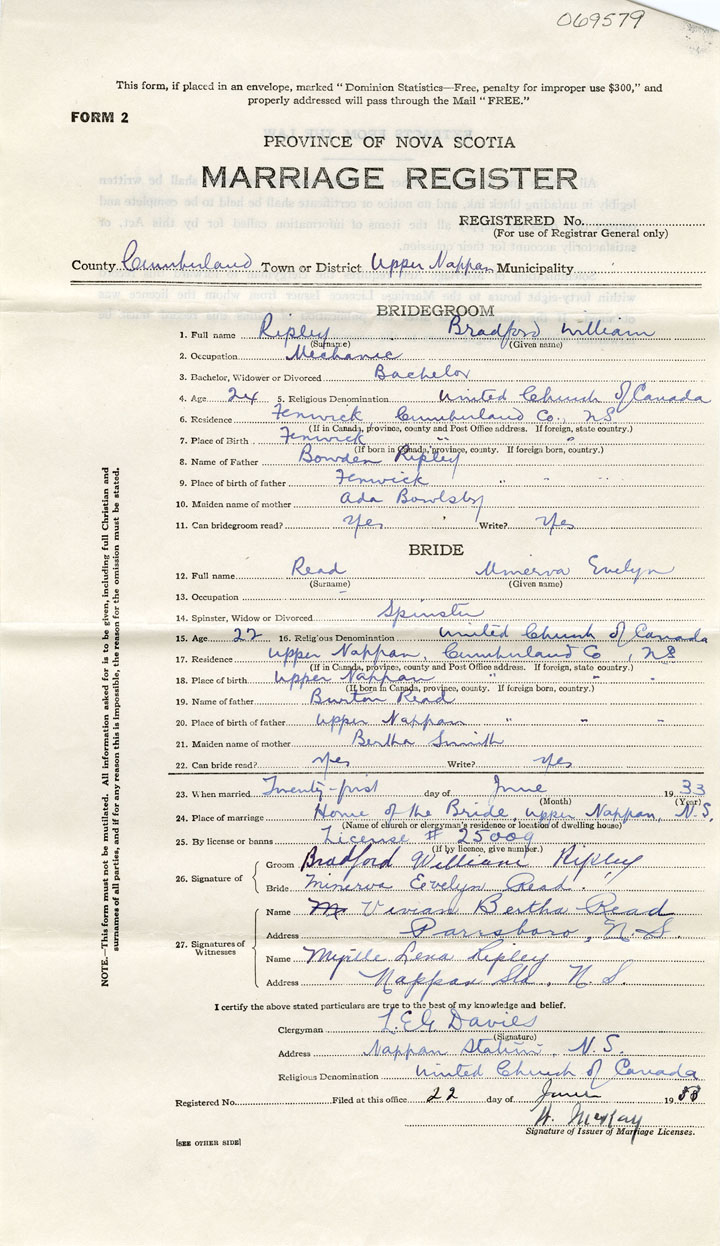 069579
This form, if placed in an envelope, marked "Dominion Statistics—Free, penalty for improper use $300," and
properly addressed will pass through the Mail "FREE."
FORM 2
PROVINCE OF NOVA SCOTIA
MARRIAGE REGISTER
REGISTERED No.
(For use of Registrar General only)
County Cumberland Town or District Upper Nappan Municipality
BRIDEGROOM
1. Full name Ripley Bradford William
(Surname) (Given name)
2. Occupation Mechanic
3. Bachelor, Widower or Divorced Bachelor
4. Age 24 5. Religious Denomination United Church of Canada
6. Residence Fenwick, Cumberland Co., NS
(If in Canada, province, county and Post Office address. If foreign, state country.)
7. Place of Birth Fenwick " "
(If born in Canada, province, county. If foreign born, country.)
8. Name of Father Bowden Ripley
9. Place of birth of father Fenwick " "
10. Maiden name of mother Ada Bowlsby
11. Can bridegroom read? Yes Write? Yes
BRIDE
12. Full name Read Minerva Evelyn
(Surname) (Given name)
13. Occupation –
14. Spinster, Widow or Divorced Spinster
15. Age 22 16. Religious Denomination United Church of Canada
17. Residence Upper Nappan, Cumberland Co., NS
(If in Canada, province, county and Post Office address. If foreign, state country.)
18. Place of birth Upper Nappan " " "
(If born in Canada, province, county. If foreign born, country.)
19. Name of father Burton Read
20. Place of birth of father Upper Nappan " " "
21. Maiden name of mother Bertha Smith
22. Can bride read? Yes Write? Yes
23. When married Twenty-first day of June 1933
(Month) (Year)
24. Place of marriage Home of the Bride, Upper Nappan, N.S.
(Name of church or clergyman's residence or location of dwelling house)
25. By license or banns License # 25009
(If by licence, give number.)
26. Signature of
Groom Bradford William Ripley
Bride Minerva Eevelyn Read.
27. Signatures of Witnesses
Name Vivian Bertha Read
Address Parrsboro, N.S.
Name Myrtle Lena Ripley
Address Nappan Sta, N.S.
I certify the above stated particulars are true to the best of my knowledge and belief.
Clergyman L.E.G. Davies
(Signature)
Address Nappan Station, N.S.
Religious Denomination United Church of Canada
Registered No. Filed at this office 22 day of June 1933
H. McKay
Signature of Issuer of Marriage Licenses.
[SEE OTHER SIDE]
NOTE.—This form must not be mutilated. All information asked for is to be given, including full Christian and
surnames of all parties, and if for any reason this is impossible, the reason for the omission must be stated.